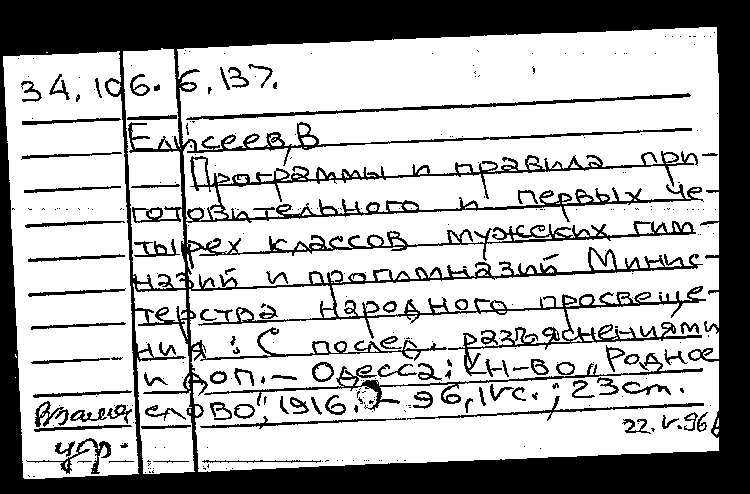 34.106. 6.137.
Елисеев, В
Программы и правила при-
готовительного и первых че-
тырех классов мужских гим-
назий и прогимназий Минис-
терства народного просвеще-
ния: С послед. разъяснениями
и доп. – Одесса; Кн-во „Родное
слово“, 1916. – 96, IV с.; 23 cm.
Взамен
утр.
22.V.96